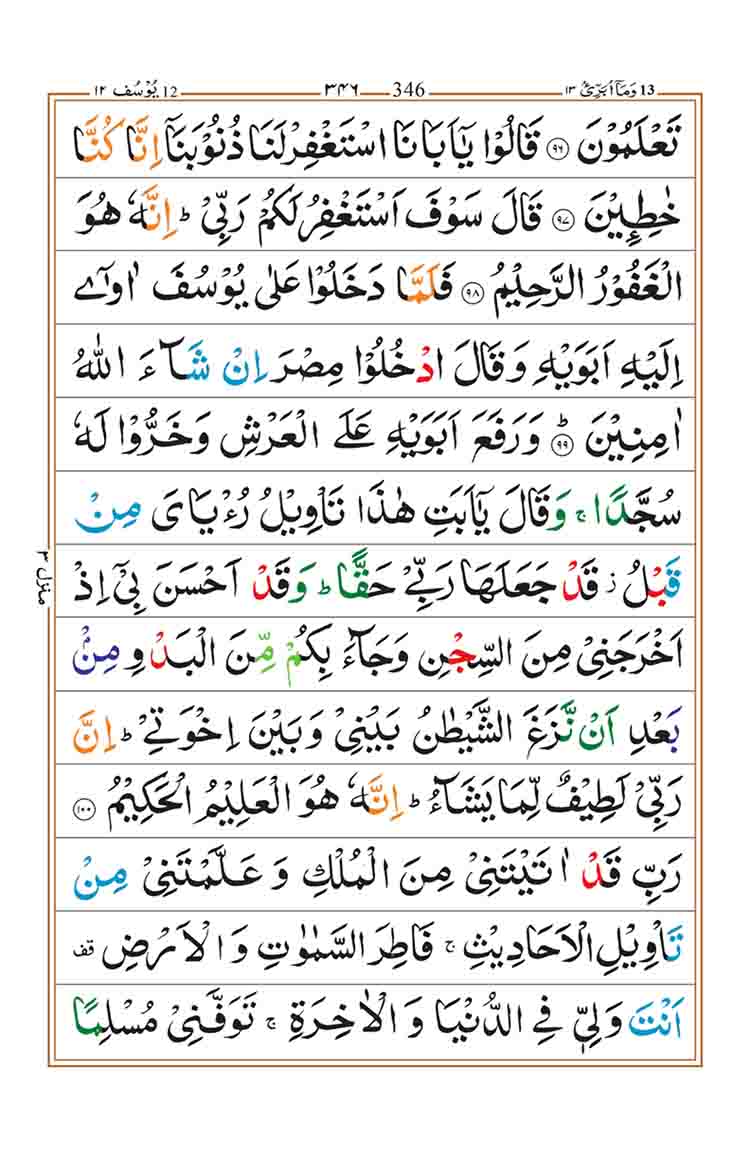 13 وَمَاۤ اُبَرِّئُ ١٣ 346 ٣٤٦ 12 يُوۡسُف ١٢
تَعۡلَمُوۡنَ ﴿٩٦﴾ قَالُوۡا يٰۤاَبَانَا اسۡتَغۡفِرۡ لَنَا ذُنُوۡبَنَاۤ اِنَّا كُنَّا
خٰطِـِٕيۡنَ ﴿٩٧﴾ قَالَ سَوۡفَ اَسۡتَغۡفِرُ لَكُمۡ رَبِّىۡ ؕ اِنَّهٗ هُوَ
الۡغَفُوۡرُ الرَّحِيۡمُ ﴿٩٨﴾ فَلَمَّا دَخَلُوۡا عَلٰى يُوۡسُفَ اٰوٰٓى
اِلَيۡهِ اَبَوَيۡهِ وَقَالَ ادۡخُلُوۡا مِصۡرَ اِنۡ شَآءَ اللّٰهُ
اٰمِنِيۡنَ ؕ ﴿٩٩﴾ وَرَفَعَ اَبَوَيۡهِ عَلَى الۡعَرۡشِ وَخَرُّوۡا لَهٗ
سُجَّدًا ۚ وَقَالَ يٰۤاَبَتِ هٰذَا تَاۡوِيۡلُ رُءۡيَاىَ مِنۡ
قَبۡلُ ز قَدۡ جَعَلَهَا رَبِّىۡ حَقًّا ؕ وَقَدۡ اَحۡسَنَ بِىۡۤ اِذۡ
اَخۡرَجَنِىۡ مِنَ السِّجۡنِ وَجَآءَ بِكُمۡ مِّنَ الۡبَدۡوِ مِنۡۢ
بَعۡدِ اَنۡ نَّزَغَ الشَّيۡطٰنُ بَيۡنِىۡ وَبَيۡنَ اِخۡوَتِىۡ ؕ اِنَّ
رَبِّىۡ لَطِيۡفٌ لِّمَا يَشَآءُ ؕ اِنَّهٗ هُوَ الۡعَلِيۡمُ الۡحَكِيۡمُ ﴿١٠٠﴾
رَبِّ قَدۡ اٰتَيۡتَنِىۡ مِنَ الۡمُلۡكِ وَ عَلَّمۡتَنِىۡ مِنۡ
تَاۡوِيۡلِ الۡاَحَادِيۡثِ ۚ فَاطِرَ السَّمٰوٰتِ وَ الۡاَرۡضِ قف
اَنۡتَ وَلِىّٖ فِى الدُّنۡيَا وَ الۡاٰخِرَةِ ۚ تَوَفَّنِىۡ مُسۡلِمًا
منزل ٣